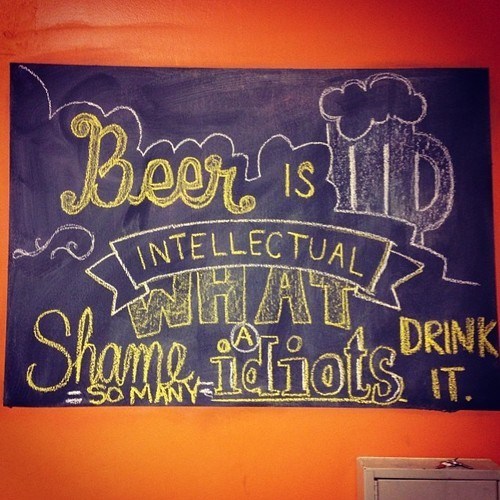 Beer IS
INTELLECTUAL
WHAT
A
Shame
=SO MANY=
idiots
DRINK
IT.